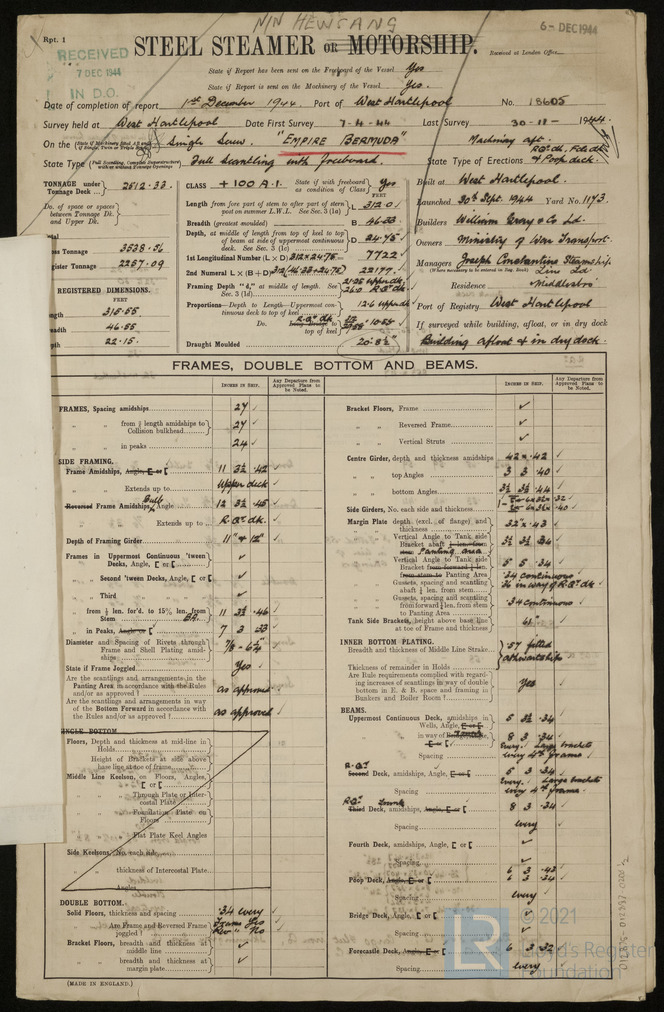 NIN HEWSANG
6 - DEC 1944
Rpt. 1
STEEL STEAMER OR MOTORSHIP.
Received at London Office
RECEIVED
7 DEC 1944
IN D.O.
State if Report has been sent on the Freeboard of the Vessel Yes
State if Report is sent on the Machinery of the Vessel Yes.
Date of completion of report 1st December 1944. Port of West Hartlepool No. 18605
Survey held at West Hartlepool Date First Survey 7-4-44 Last Survey 30-11- 1944
On the Single Screw "EMPIRE BERMUDA" Machinery aft.
State Type Full Scantling with freeboard. State Type of Erections & Poop deck.
TONNAGE under Tonnage Deck 2512.33
Do. of space or spaces between Tonnage Dk. and Upper Dk.
Total
Gross Tonnage 3538.56
Register Tonnage 2257.09
REGISTERED DIMENSIONS.
FEET
Length 315.55
Breadth 46.55
Depth 22.15
CLASS +100 A.1. State if with freeboard as condition of Class Yes
FEET
Length from fore part of stem to after part of stern post on summer L.W.L. See Sec. 3 (1a) L 312.0
Breadth (greatest moulded) B 46.33
Depth, at middle of length from top of keel to top of beam at side of uppermost continuous deck. See Sec. 3 (1c) D 24.75
1st Longitudinal Number (L × D) 312×24.75 = 7722
2nd Numeral L × (B + D) 312(46.33+24.75) 22177
Framing Depth "d," at middle of length. See Sec. 3 (1d)
Proportions—Depth to Length—Uppermost continuous deck to top of keel 12.6 upper dk
Do. top of keel
Draught Moulded 20'-8½"
Built at West Hartlepool.
Launched 30th Sept. 1944 Yard No. 1173
Builders William Gray & Co Ld.
Owners Ministry of War Transport.
Managers Joseph Constantine Steamship Line Ld
(Where necessary to be entered in Reg. Book)
Residence Middlesbro
Port of Registry West Hartlepool
If surveyed while building, afloat, or in dry dock
Building afloat & in dry dock.
FRAMES, DOUBLE BOTTOM AND BEAMS.
INCHES IN SHIP.
Any Departure from Approved Plans to be Noted.
INCHES IN SHIP.
Any Departure from Approved Plans to be Noted.
FRAMES, Spacing amidships 27 ✓
" " from ⅗ length amidships to Collision bulkhead 27 ✓
" " in peaks 24 ✓
SIDE FRAMING.
Frame Amidships, Angle, [ or [ 11 3½ .42
Extends up to Upper deck
Reversed Frame Amidships, Bulb Angle 12 3½ .45 ✓
Extends up to R.Qr dk.
Depth of Framing Girder 11" & 12" ✓
Frames in Uppermost Continuous 'tween Decks, Angle, [ or [ ✓
" Second 'tween Decks, Angle, [ or [ ✓
" Third " " " ✓
" from ⅗ len. for'd. to 15% len. from Stem BA. 11 3½ .46
" in Peaks, Angle or [ 7 3 .33
Diameter and Spacing of Rivets through Frame and Shell Plating amidships 7/8 - 6¼
State if Frame Joggled Yes
Are the scantlings and arrangements in the Panting Area in accordance with the Rules and/or as approved? as approved
Are the scantlings and arrangements in way of the Bottom Forward in accordance with the Rules and/or as approved? as approved
SINGLE BOTTOM.
Floors, Depth and thickness at mid-line in Holds
Height of Brackets at side above base line at toe of frame
Middle Line Keelson, on Floors, Angles, [ or [
" " Through Plate or Intercostal Plate
" " Foundation Plate on Floors
" " Flat Plate Keel Angles
Side Keelsons, No. each side
" " thickness of Intercostal Plate
" " Angles
DOUBLE BOTTOM.
Solid Floors, thickness and spacing .34 every
" " Are Frame and Reversed Frame joggled? Frame Yes Rev" No
Bracket Floors, breadth and thickness at middle line ✓
" " breadth and thickness at margin plate ✓
(MADE IN ENGLAND.)
Bracket Floors, Frame ✓
" " Reversed Frame ✓
" " Vertical Struts ✓
Centre Girder, depth and thickness amidships 42 × .42
" " top Angles 3 3 .40
" " bottom Angles 3½ 3½ .44
Side Girders, No. each side and thickness
Margin Plate depth (excl. of flange) and thickness 32 × .43
" " Vertical Angle to Tank side Bracket abaft Panting area 3½ 3½ .34
" " Vertical Angle to Tank side Bracket from forward ⅗ len. from stem to Panting Area 5 5 .34
" " Gussets, spacing and scantling abaft ⅗ len. from stem .34 continuous
" " Gussets, spacing and scantling from forward ⅗ len. from stem to Panting Area .34 continuous
Tank Side Brackets, height above base line at toe of Frame and thickness
INNER BOTTOM PLATING.
Breadth and thickness of Middle Line Strake .57 fitted athwartships
Thickness of remainder in Holds
Are Rule requirements complied with regarding increases of scantlings in way of double bottom in E. & B. space and framing in Bunkers and Boiler Room? Yes
BEAMS.
Uppermost Continuous Deck, amidships in Wells, Angle, [ or [ 5 3½ .34
" " in way of 8 3 .34
Spacing every. Large brackets every 4th frame
R.Qr
Second Deck, amidships, Angle, [ or [ 5 3 .34
Spacing every. Large brackets every 4th frame.
Third Deck, amidships, Angle, [ or [ 8 3 .34
Spacing every
Fourth Deck, amidships, Angle, [ or [ ✓
Spacing ✓
Poop Deck, Angle, [ or [ 6 3 .34
Spacing every
Bridge Deck, Angle, [ or [ ✓
Spacing ✓
Forecastle Deck, Angle, [ or [ 6 3 .32
Spacing every
LR
© 2021
Lloyd's Register
Foundation